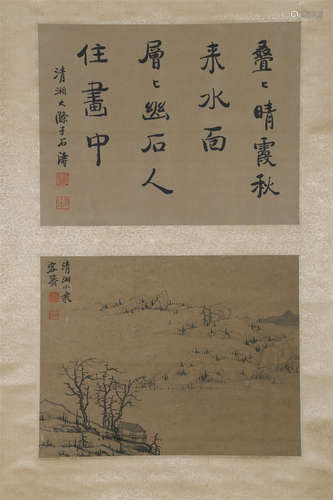 叠〻晴霞秋
来水面
層〻幽石人
住畫中
清湘大滌子石濤
清湘小乘
客